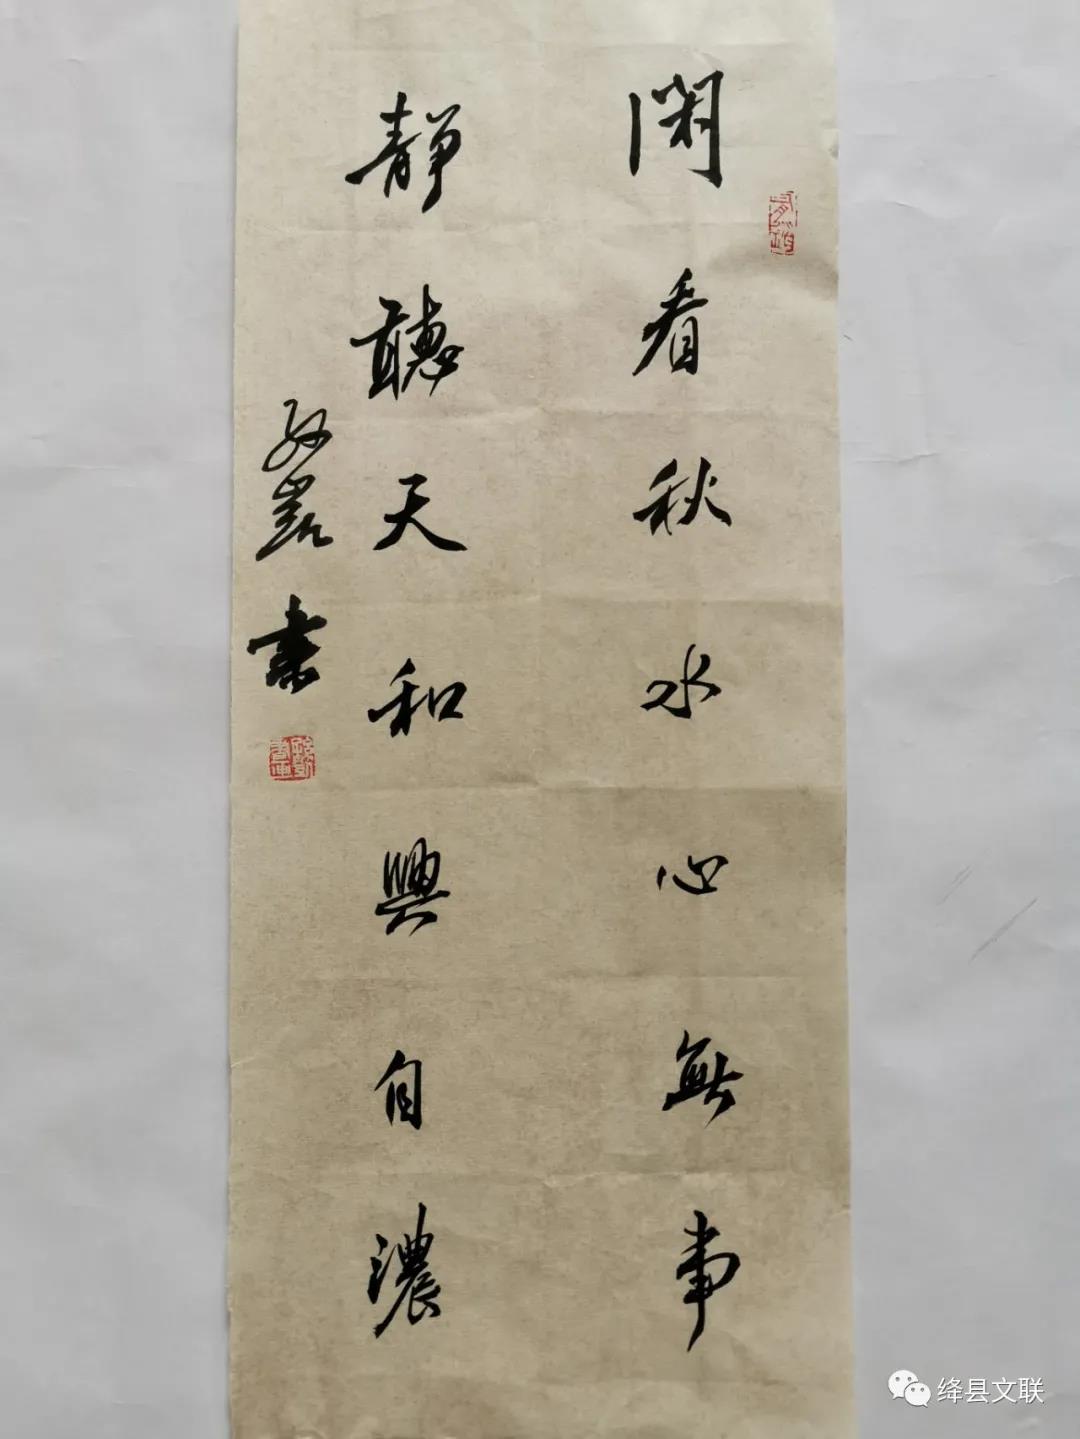 閑看秋水心無事
靜聽天和興自濃
孙凯書
绛县文联